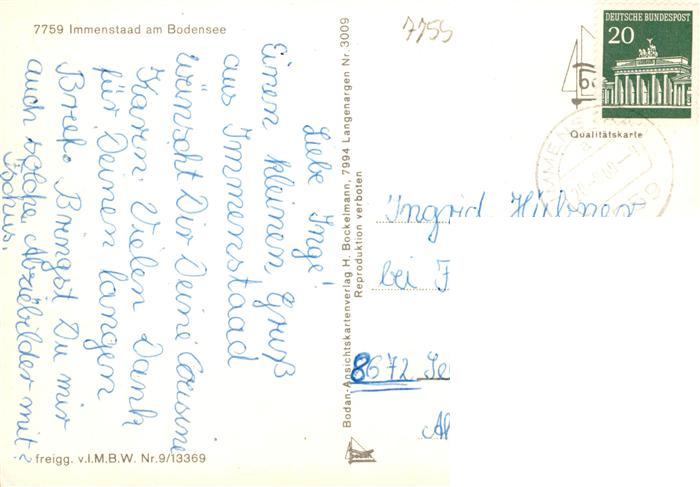 7759 Immenstaad am Bodensee
7755
DEUTSCHE BUNDESPOST
20
Qualitätskarte
Liebe Inge!
Einen kleinen Gruß
aus Immenstaad
wünscht Dir Deine Cousine
Karin. Vielen Dank
für Deinen langen
Brief. Bringst Du mir
auch solche Abziebilder mit?
Tschüs.
Bodan-Ansichtskartenverlag H. Bockelmann, 7994 Langenargen Nr. 3009
Reproduktion verboten
Ingrid Hübner
bei
8672
freigg. v.I.M.B.W. Nr.9/13369